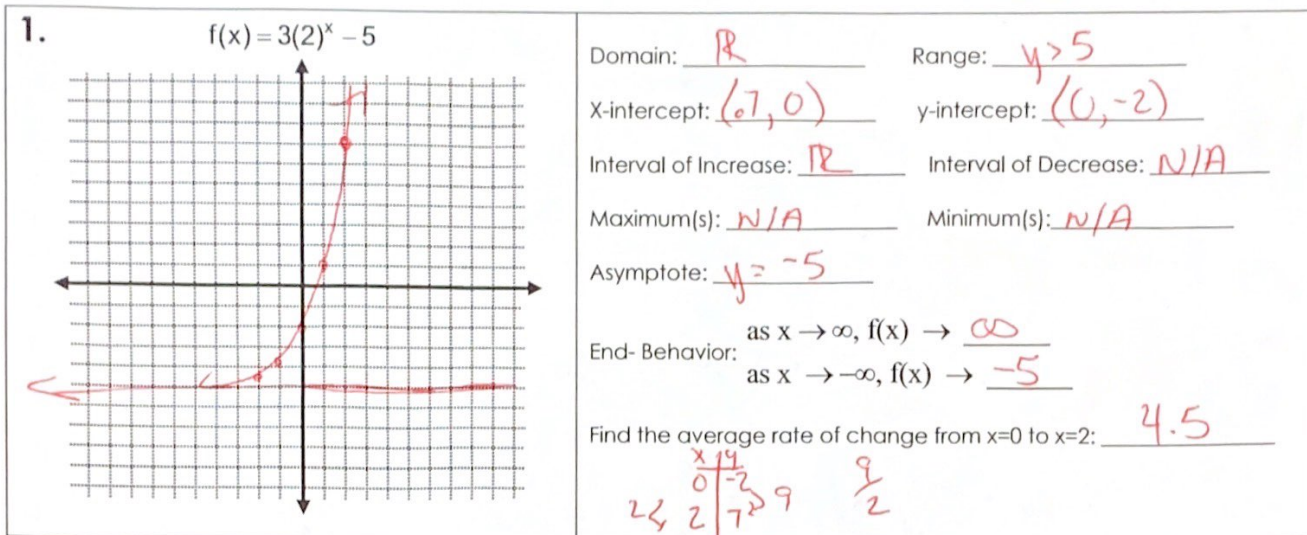 1.
f(x) = 3(2)ˣ – 5
Domain: ℝ Range: y > 5
X-intercept: (.7, 0) y-intercept: (0, -2)
Interval of Increase: ℝ Interval of Decrease: N/A
Maximum(s): N/A Minimum(s): N/A
Asymptote: y = -5
as x → ∞, f(x) → ∞
End- Behavior:
as x → –∞, f(x) → -5
Find the average rate of change from x=0 to x=2: 4.5
x | y
0 | -2
2 2 | 7 9
9/2